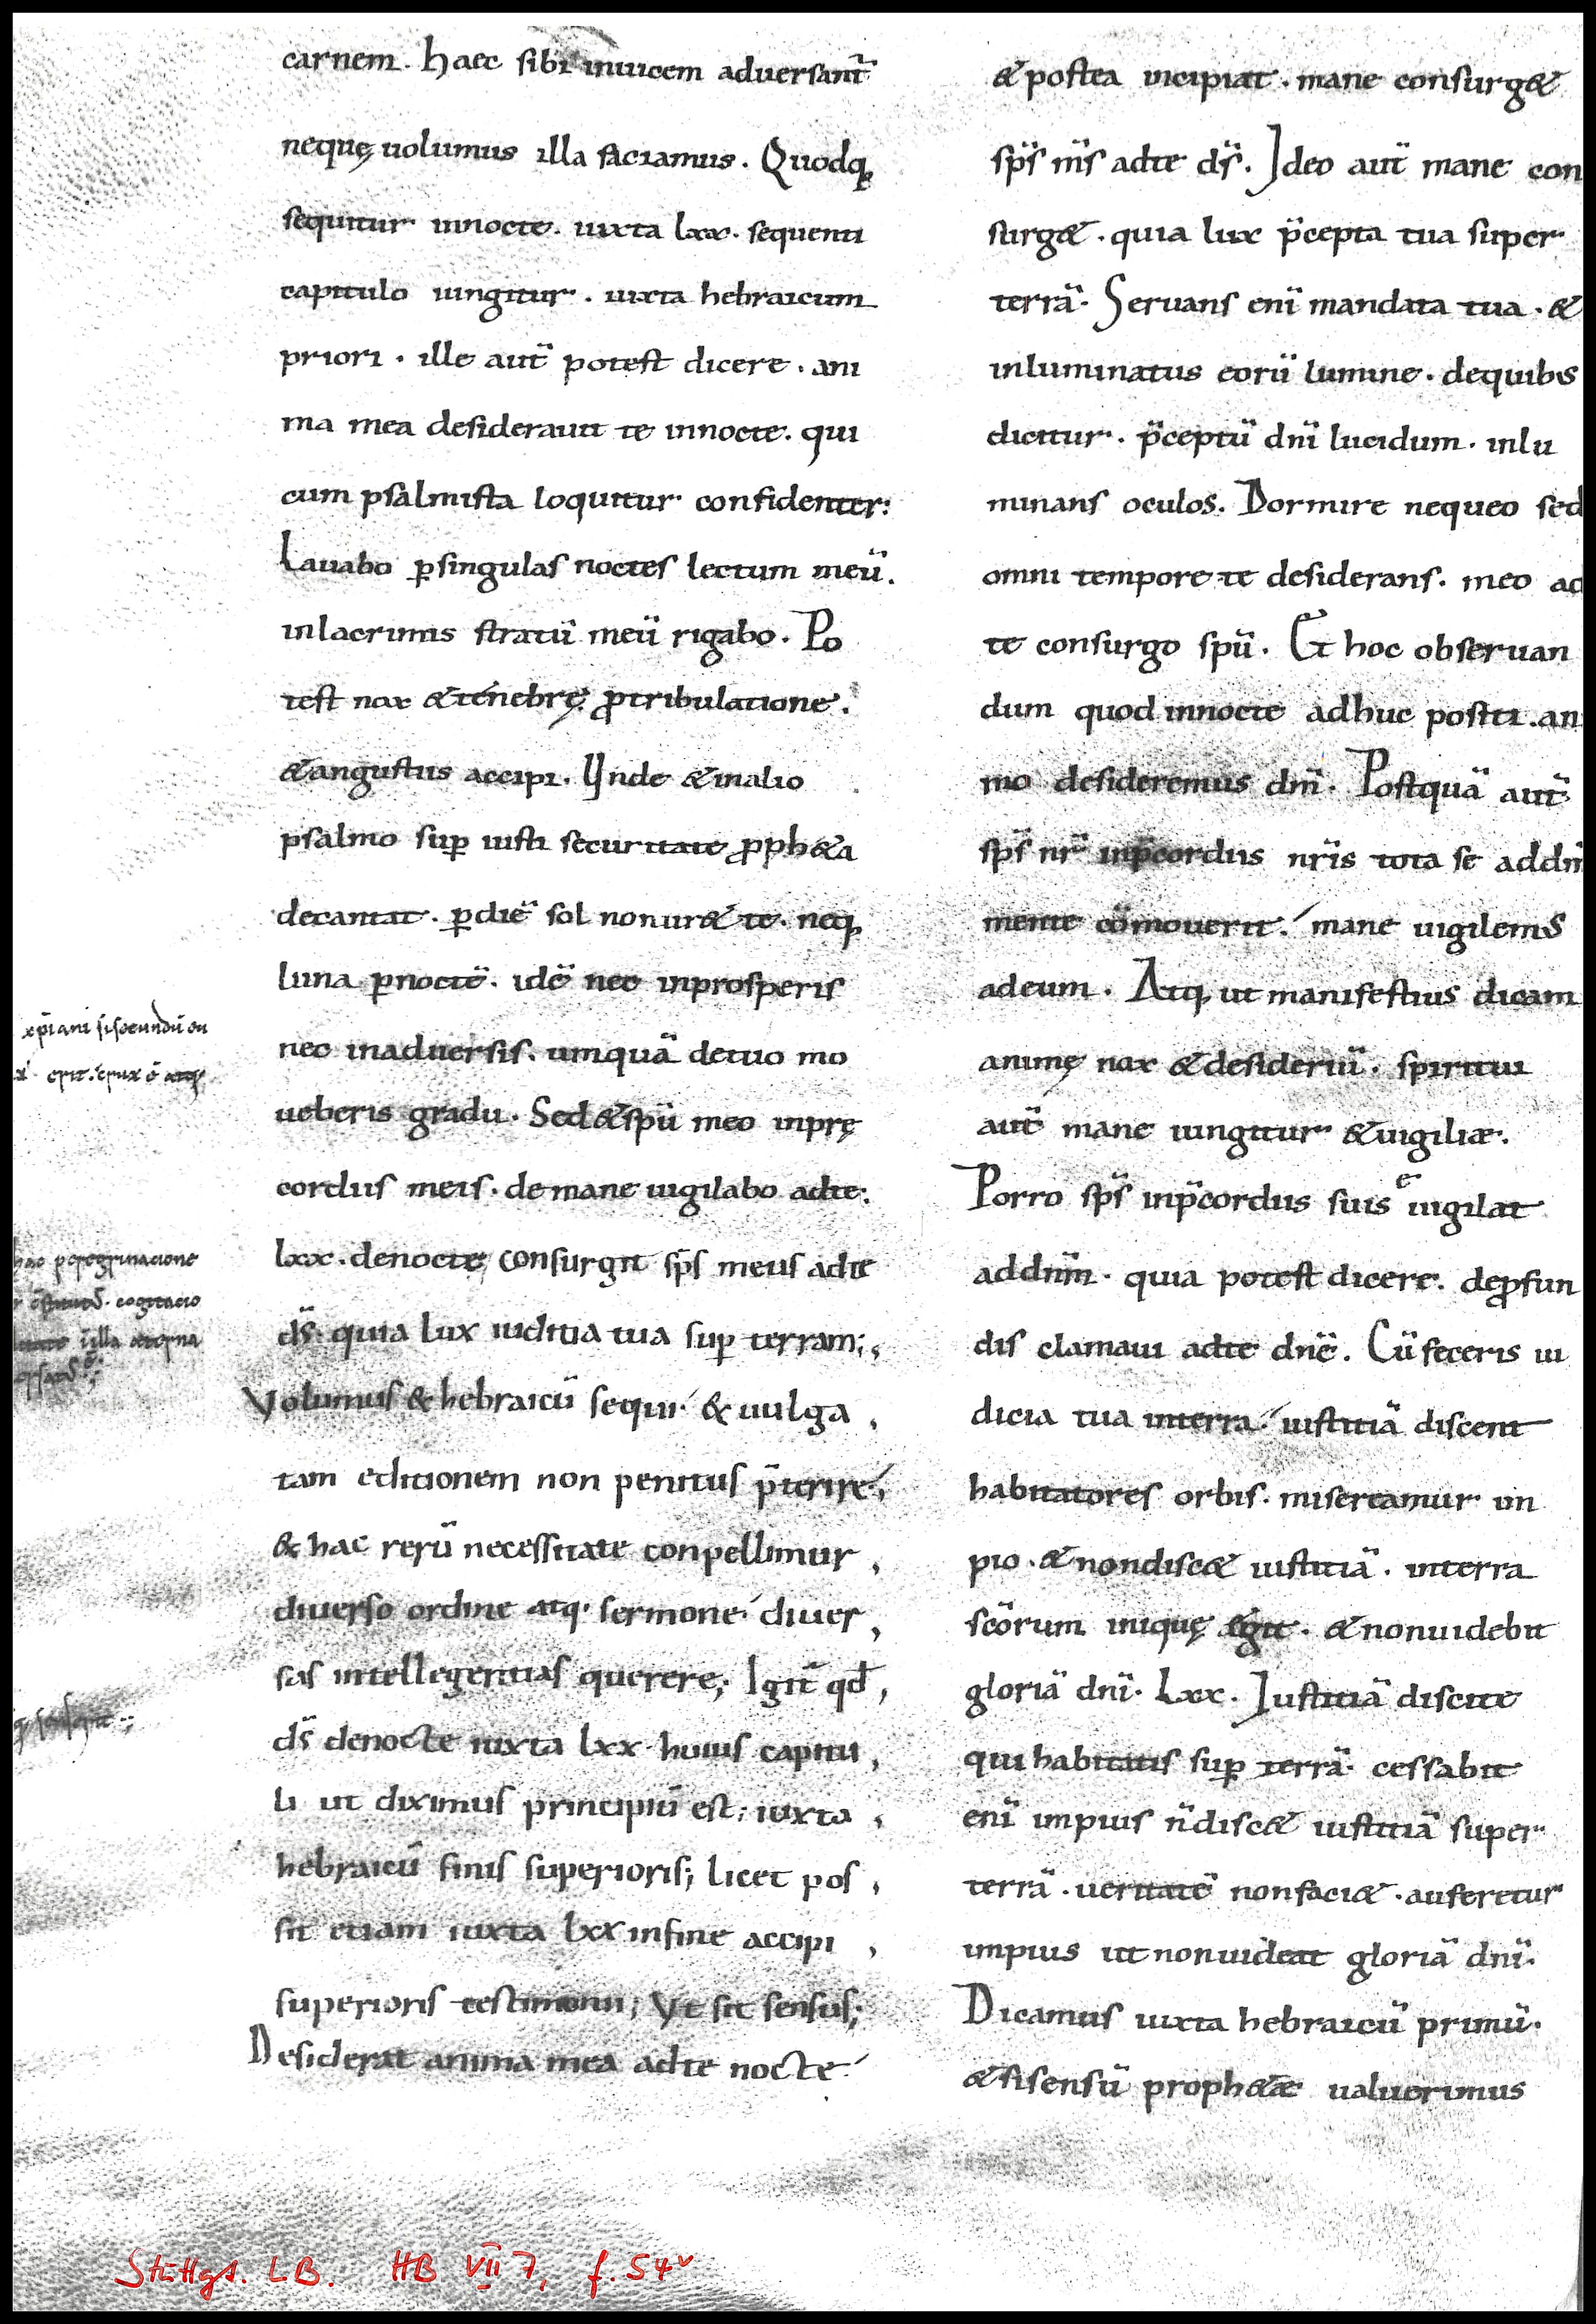 carnem. haec sibi inuicem aduersant̃
neq; uolumus illa faciamus. Quodq;
sequitur innocte. iuxta lxx. sequenti
capitulo iungitur. iuxta hebraicum
priori. ille aut̃ potest dicere. ani
ma mea desiderauit te innocte. qui
cum psalmista loquitur confidenter:
Lauabo ꝑsingulas noctes lectum meũ.
inlacrimis stratũ meũ rigabo. Po
test nox & tenebrę ꝓtribulatione.
& angustiis accipi. Unde & inalio
psalmo suꝑ iusti securitate ꝓph&a
decantat. ꝑdiẽ sol nonur& te. neq;
luna ꝑnoctẽ. idẽ nec inprosperis
nec inaduersis. umquã detuo mo
ueberis gradu. Sed & spũ meo inprę
cordiis meis. demane uigilabo adte:
lxx. denocte consurgit sp̃s meus adte
d̃s. quia lux iuditia tua suꝑ terram;
Volumus & hebraicũ sequi & uulga
tam editionem non penitus p̃terire;
& hac rerũ necessitate conpellimur
diuerso ordine atq; sermone diuer
sas intellegentias querere; Igit̃ qđ
d̃s denocte iuxta lxx huius capitu
li ut diximus principiũ est; iuxta
hebraicũ finis superioris; licet pos
sit etiam iuxta lxx infine accipi
superioris testimonii; Ut sit sensus;
Desiderat anima mea adte nocte
xp̃iani si secundũ eu
erit. crux ẽ atq;
hac peregrinacione
cogitacio
illa aeterna
& postea incipiat. mane consurg&
sp̃s m̃s adte d̃s. Ideo aut̃ mane con
surg&. quia lux p̃cepta tua super
terrã. Seruans enĩ mandata tua. &
inluminatus eorũ lumine. dequibus
dicitur. p̃ceptũ dñi lucidum. inlu
minans oculos. Dormire nequeo sed
omni tempore te desiderans. meo ad
te consurgo spũ. Et hoc obseruan
dum quod innocte adhuc positi. ani
mo desideremus dñm. Postquã aut̃
sp̃s nr̃ inp̃cordiis nr̃is tota se addñm
mente cõmouerit. mane uigilemus
adeum. Atq; ut manifestius dicam
animę nox & desideriũ. spiritui
aut̃ mane iungitur & uigiliae.
Porro sp̃s inp̃cordiis suis euigilat
addñm. quia potest dicere. deꝓfun
dis clamaui adte dñe. Cũ feceris iu
dicia tua interra. iustitiã discent
habitatores orbis. misereamur im
pio. & nondisc& iustitiã. interra
scõrum iniquę egit. & nonuidebit
gloriã dñi. Lxx. Iustitiã discite
qui habitatis suꝑ terrã. cessabit
enĩ impius ñ disc& iustitiã super
terrã. ueritatẽ nonfaci&. auferetur
impius ut nonuideat gloriã dñi.
Dicamus iuxta hebraicũ primũ.
& si sensũ proph&ae ualuerimus
Stuttgt. LB. HB VII 7, f. 54ᵛ